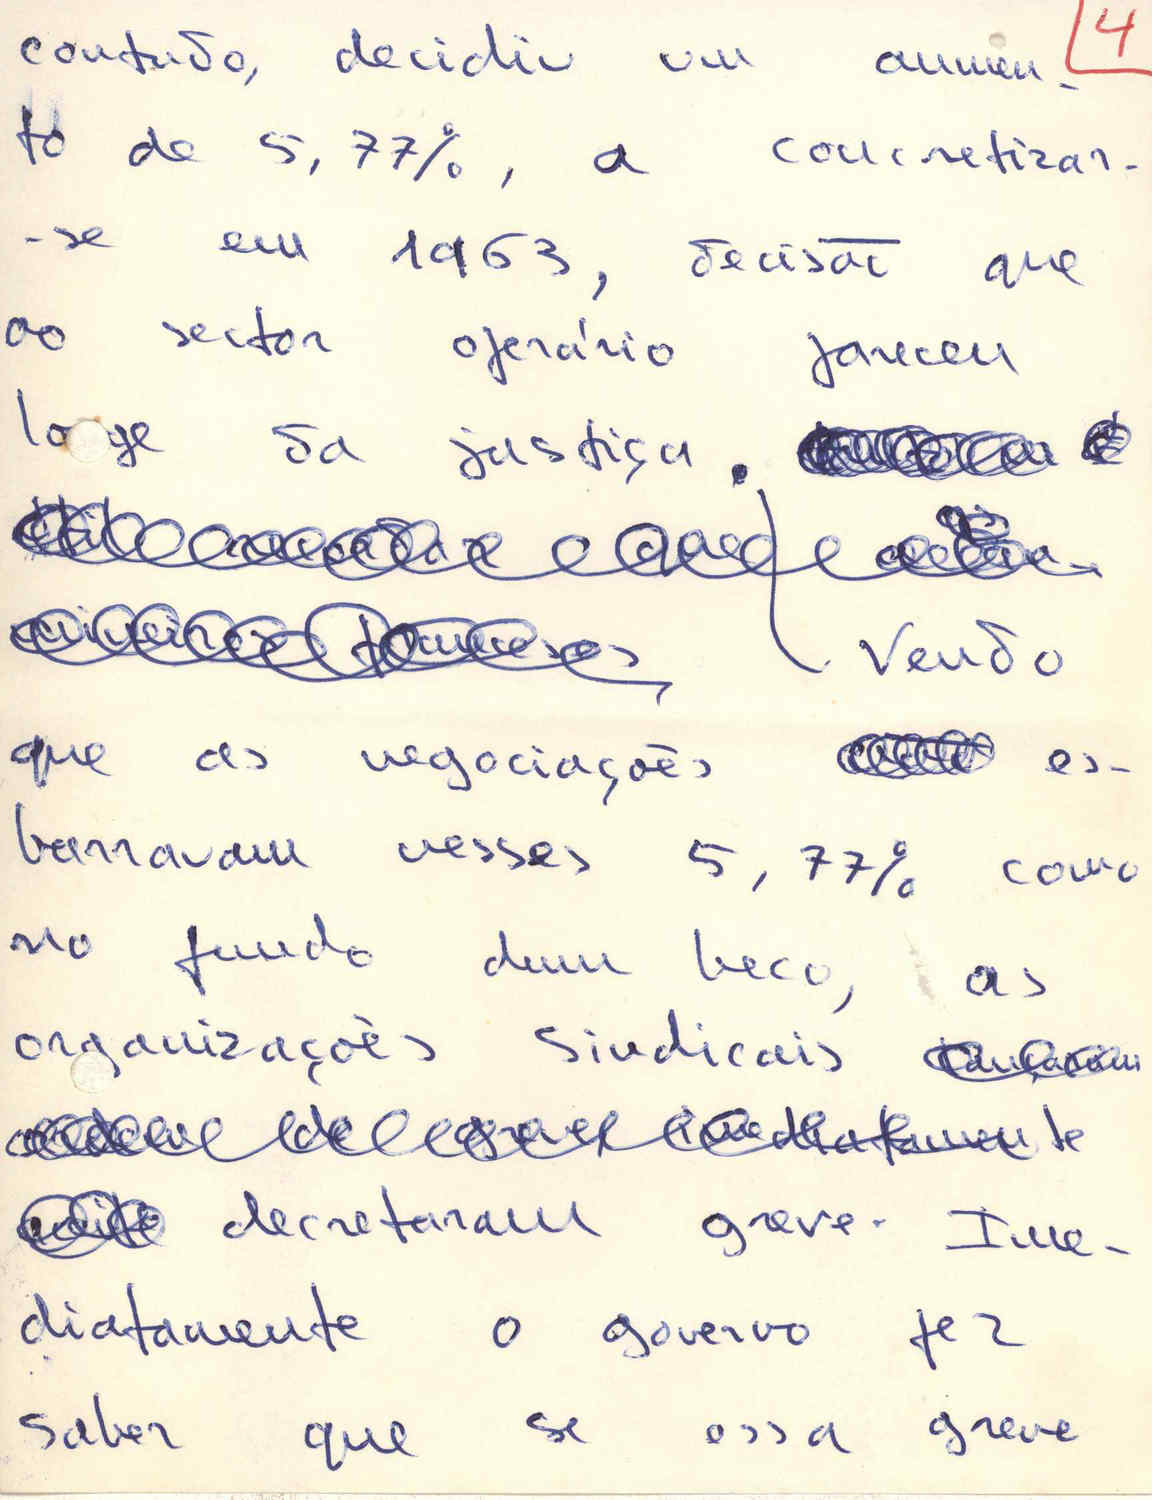 4
contudo, decidiu um aumen-
to de 5,77%, a concretizar-
-se em 1963, decisão que
ao sector operário pareceu
longe da justiça.
Vendo
que as negociações es-
barravam nesses 5,77% como
no fundo dum beco, as
organizações sindicais lançaram
ordem de greve imediatamente
decretaram greve. Ime-
diatamente o governo fez
saber que se essa greve